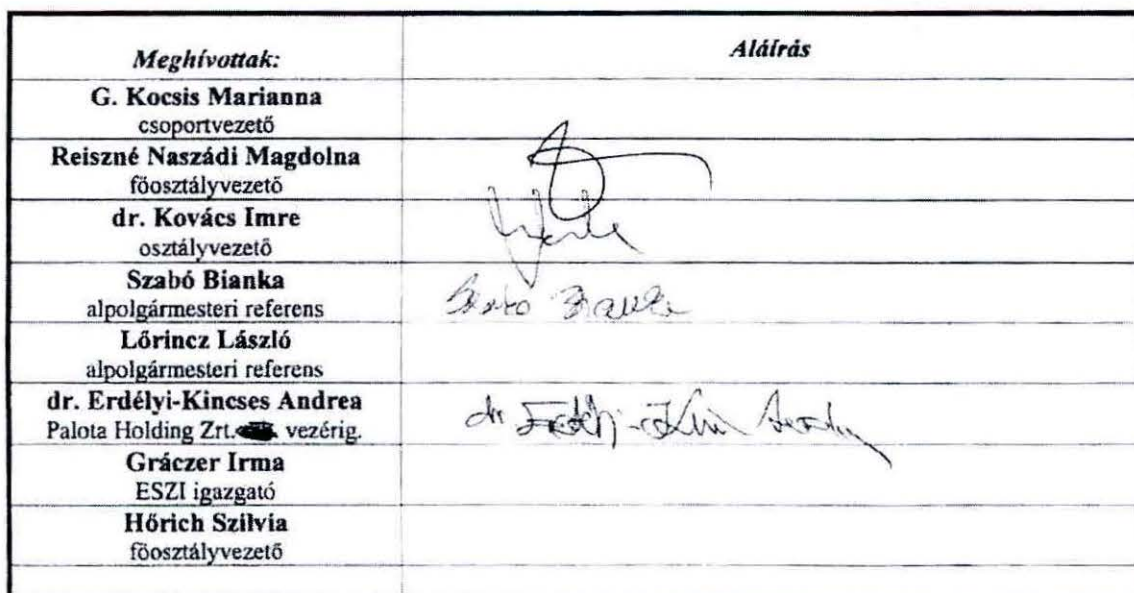 Meghívottak: Aláírás
G. Kocsis Marianna
csoportvezető
Reiszné Naszádi Magdolna
főosztályvezető
dr. Kovács Imre
osztályvezető
Szabó Bianka
alpolgármesteri referens
Szabó Bianka
Lőrincz László
alpolgármesteri referens
dr. Erdélyi-Kincses Andrea
Palota Holding Zrt. vezérig.
dr Erdélyi-Kincses Andrea
Gráczer Irma
ESZI igazgató
Hőrich Szilvia
főosztályvezető